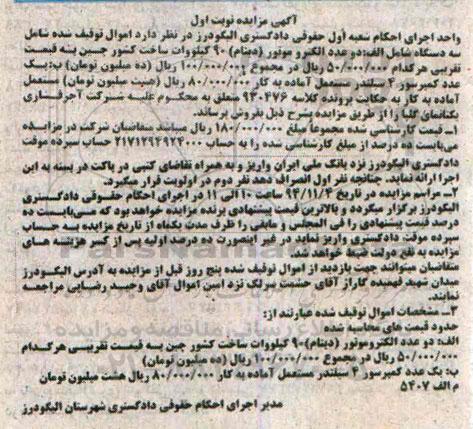 آگهی مزایده نوبت اول
واحد اجرای احکام شعبه اول حقوقی دادگستری الیگودرز در نظر دارد اموال توقیف شده شامل
سه دستگاه شامل الف:دو عدد الکترو موتور (دینام) ۹۰ کیلووات ساخت کشور چین به قیمت
تقریبی هرکدام ۵۰/۰۰۰/۰۰۰ ریال در مجموع ۱۰۰/۰۰۰/۰۰۰ ریال (ده میلیون تومان) ب: یک
عدد کمپرسور ۴ سیلندر مستعمل آماده به کار ۸۰/۰۰۰/۰۰۰ ریال (هشت میلیون تومان) مستعمل
آماده به کار به حکایت پرونده کلاسه ۹۳۰۴۷۶ متعلق به محکوم علیه شرکت آجرفاری
یکتانمای گلپا را از طریق مزایده بشرح ذیل بفروش برساند.
۱- قیمت کارشناسی شده مجموعاً مبلغ ۱۸۰/۰۰۰/۰۰۰ ریال میباشد متقاضیان شرکت در مزایده
می‌بایست ده درصد از مبلغ کارشناسی شده را به حساب ۲۱۷۱۲۹۴۹۲۴۰۰۰ حساب سپرده موقت
دادگستری الیگودرز نزد بانک ملی ایران واریز و به همراه تقاضای کتبی در پاکت در بسته به این
اجرا ارائه نماید. چنانچه نفر اول انصراف دهد نفر دوم در اولویت قرار میگیرد.
۲- مراسم مزایده در تاریخ ۹۴/۱۱/۴ ساعت ۱۰ الی ۱۱ در اجرای احکام حقوقی دادگستری
الیگودرز برگزار میگردد و بالاترین قیمت پیشنهادی برنده مزایده خواهد بود که می‌بایست ده
درصد قیمت پیشنهادی را فی المجلس و مابقی را ظرف مدت یکماه از تاریخ مزایده به حساب
سپرده موقت دادگستری واریز نماید در غیر اینصورت ده درصد اولیه پس از کسر هزینه های
مزایده به نفع دولت ضبط خواهد شد.
متقاضیان میتوانند جهت بازدید از اموال توقیف شده پنج روز قبل از مزایده به آدرس الیگودرز
میدان شهید فهمیده گاراژ آقای حشمت سرلک نزد امین اموال آقای وحید رضایی مراجعه
نمایند.
۳- مشخصات اموال توقیف شده عبارتند از:
حدود قیمت های محاسبه شده
الف: دو عدد الکتروموتور (دینام)۹۰ کیلووات ساخت کشور چین به قیمت تقریبی هرکدام
۵۰/۰۰۰/۰۰۰ ریال در مجموع ۱۰۰/۰۰۰/۰۰۰ ریال (ده میلیون تومان)
ب: یک عدد کمپرسور ۴ سیلندر مستعمل آماده به کار ۸۰/۰۰۰/۰۰۰ ریال هشت میلیون تومان
م الف ۵۴۰۷
مدیر اجرای احکام حقوقی دادگستری شهرستان الیگودرز